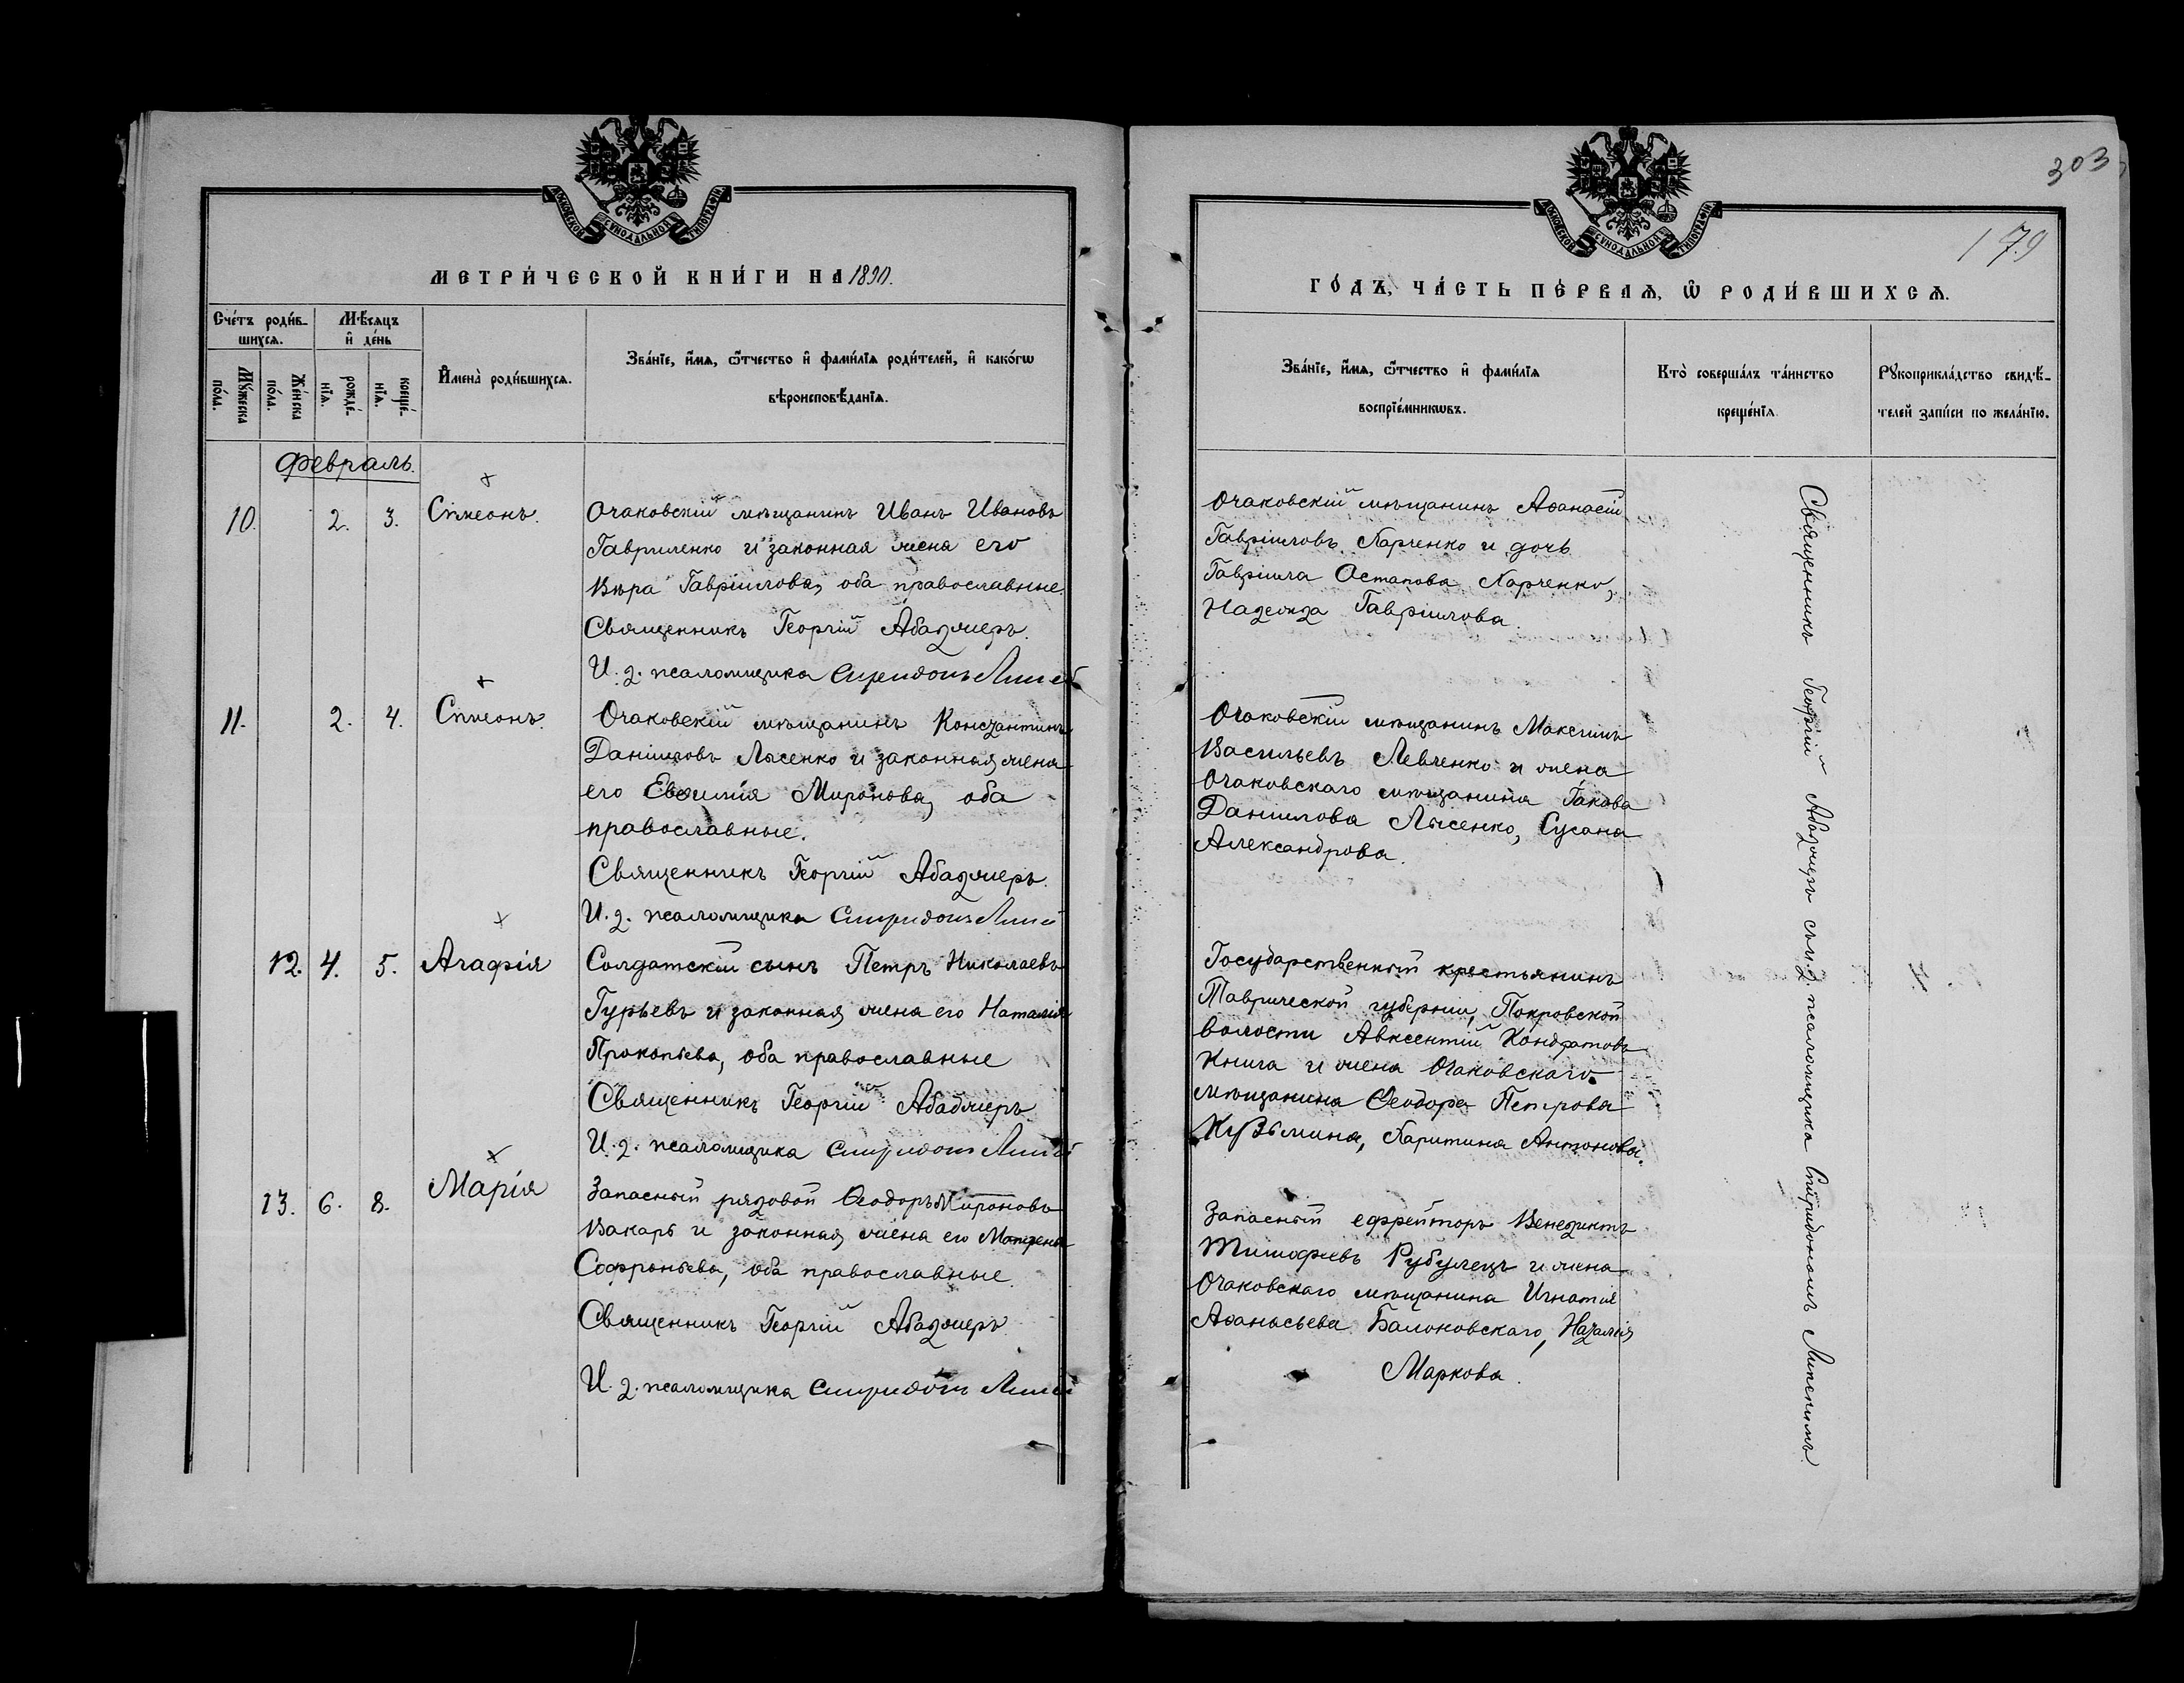 МОСКОВСКОЙ СУНОДАЛЬНОЙ ТИПОГРАФІИ
МЕТРИ́ЧЕСКОЙ КНИ́ГИ НА 1890.
Сче́тъ роди́в-
шихсѧ.
Мѣ́сѧцъ
и҆ де́нь
Мꙋ́жеска
по́ла.
Же́нска
по́ла.
рожде́-
нїѧ.
креще́-
нїѧ.
И҆мена̀ роди́вшихсѧ.
Зва́нїе, и҆́мѧ, ѻ҆́тчество и҆ фами́лїѧ роди́телей, и҆ како́гѡ
вѣроисповѣ́данїѧ.
Февраль.
10. 2. 3. Сѵмеонъ.
Очаковскій мѣщанинъ Иванъ Ивановъ
Гавриленко и законная жена его
Вѣра Гавріилова, оба православные.
Священникъ Георгій Абаджіеръ.
И. д. псаломщика Спиридонъ
11. 2. 4. Сѵмеонъ.
Очаковскій мѣщанинъ Константинъ
Даніиловъ Лысенко и законная жена
его Евѳимія Миронова, оба
православные.
Священникъ Георгій Абаджіеръ.
И. д. псаломщика Спиридонъ
12. 4. 5. Агафія
Солдатскій сынъ Петръ Николаевъ
Гурьевъ и законная жена его Наталія
Прокопьева, оба православные
Священникъ Георгій Абаджіеръ
И. д. псаломщика Спиридонъ
13. 6. 8. Марія
Запасный рядовой Ѳеодоръ Мироновъ
Вакарь и законная жена его Матрена
Софроньева, оба православные.
Священникъ Георгій Абаджіеръ.
И. д. псаломщика Спиридонъ
303
179
МОСКОВСКОЙ СУНОДАЛЬНОЙ ТИПОГРАФІИ
ГО́ДЪ, ЧА́СТЬ ПЕ́РВАѦ, Ѡ҆ РОДИ́ВШИХСѦ.
Зва́нїе, и҆́мѧ, ѻ҆́тчество и҆ фами́лїѧ
воспрїе́мникѡвъ.
Кто̀ соверша́лъ та́инство
креще́нїѧ.
Рꙋкоприкла́дство свидѣ́-
телей за́писи по жела́нїю.
Очаковскій мѣщанинъ Аѳанасій
Гавріиловъ Харченко и дочь
Гавріила Остапова Харченко,
Надежда Гавріилова.
Очаковскій мѣщанинъ Максимъ
Васильевъ Левченко и жена
Очаковскаго мѣщанина Іакова
Даніилова Лысенко, Сусана
Александрова.
Государственный крестьянинъ
Таврической губерніи, Покровской
волости Авксентій Кондратовъ
Книга и жена Очаковскаго
мѣщанина Ѳеодора Петрова
Кузьмина, Харитина Антонова.
Запасный ефрейторъ Венедиктъ
Тимофеевъ Рубулецъ и жена
Очаковскаго мѣщанина Игнатія
Аѳанасьева Балоковскаго, Наталія
Маркова.
Священникъ Георгій Абаджіеръ съ и. д. псаломщика Спиридономъ